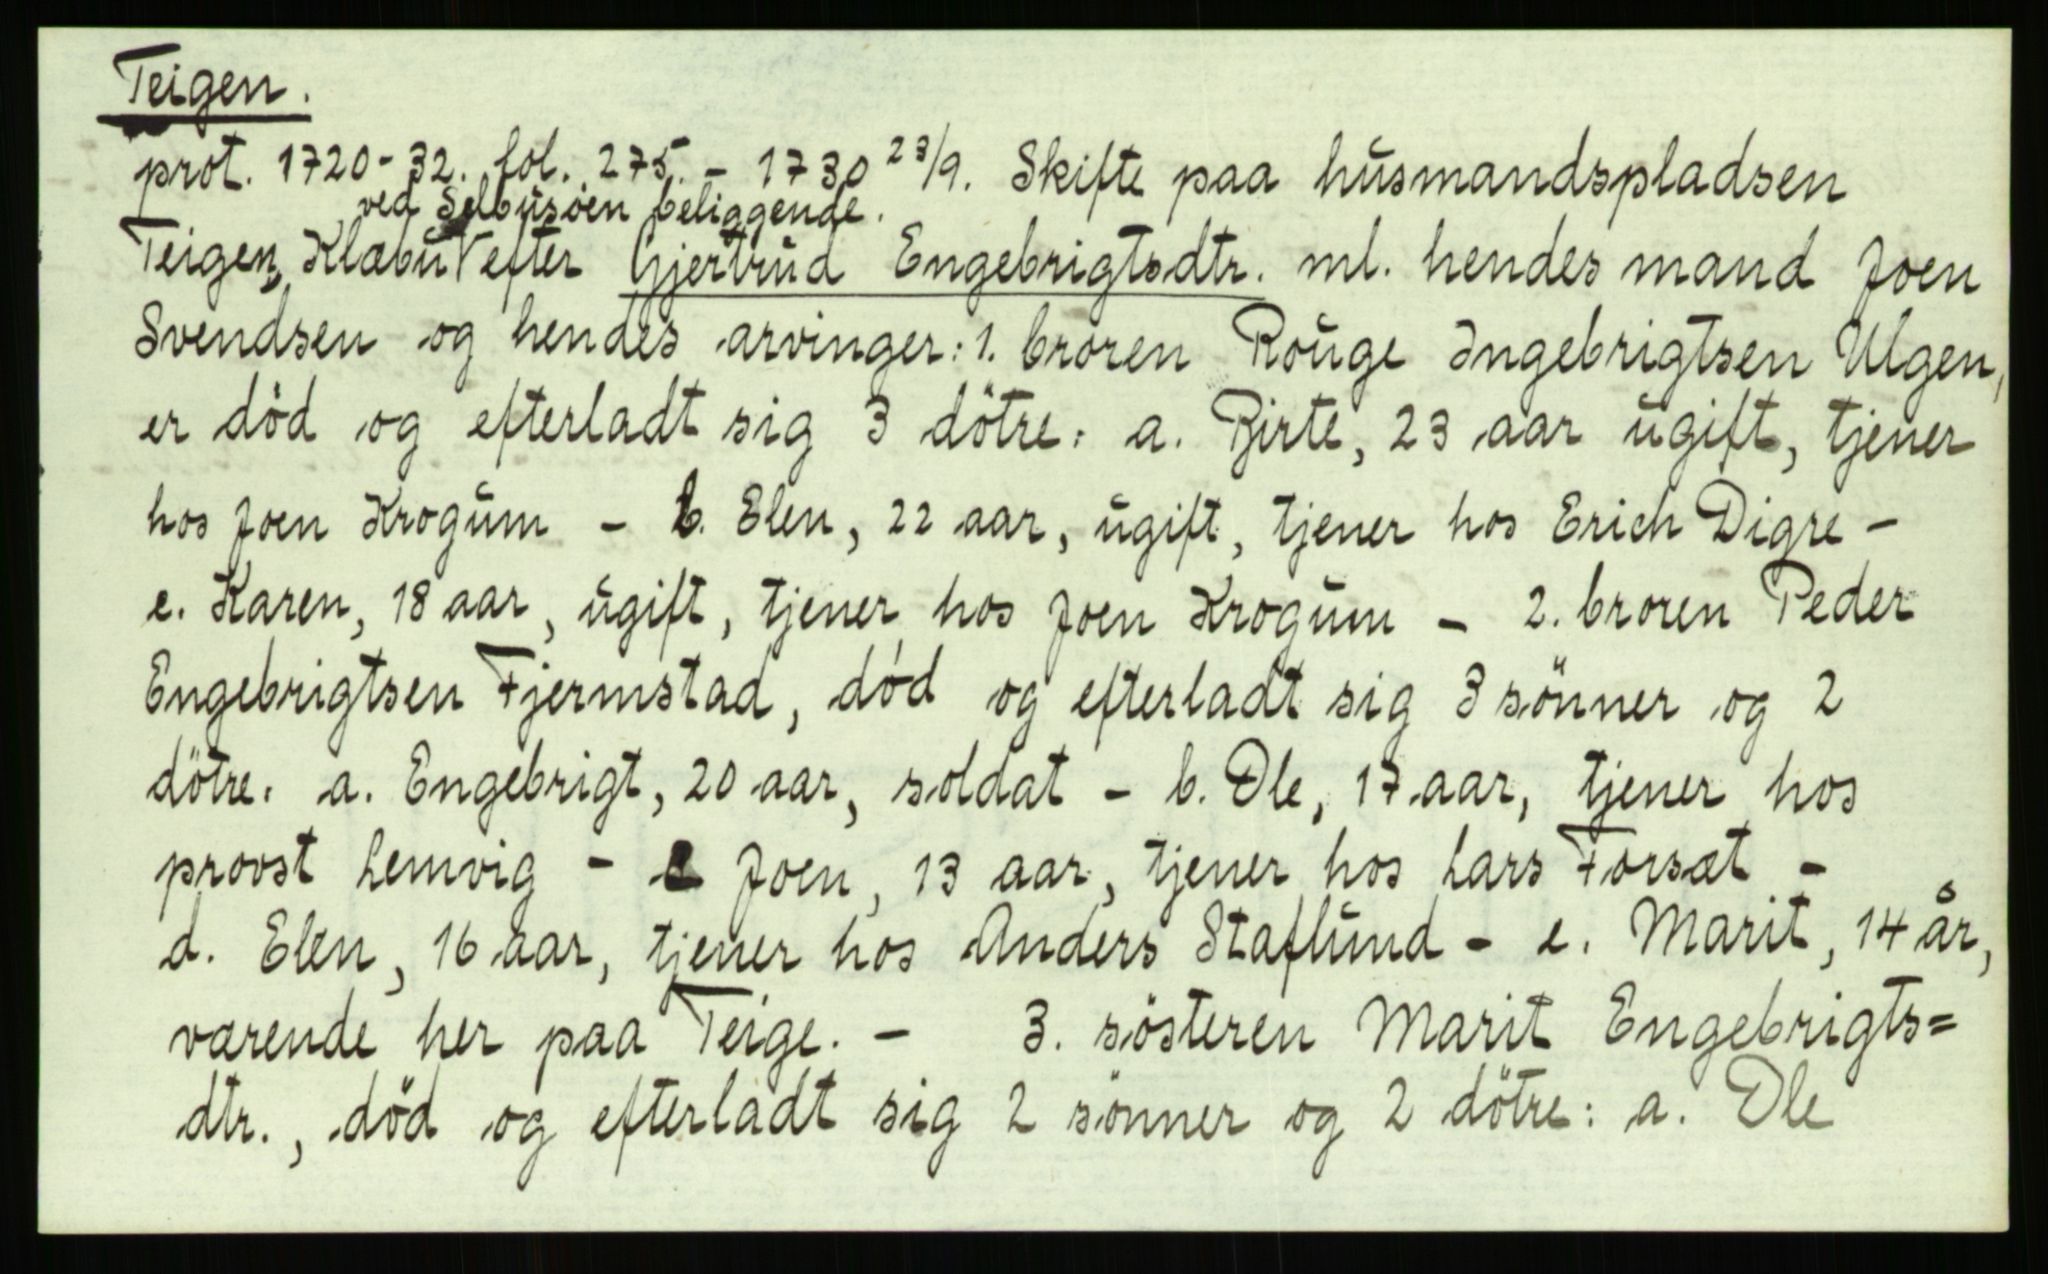 Teigen.
prot. 1720-32. fol. 275. - 1730 23/9. Skifte paa husmandspladsen
ved Selbusøen beliggende.
Teigen, Klæbu V efter Gjertrud Engebrigtsdtr. ml. hendes mand Joen
Svendsen og hendes arvinger: 1. broren Rouge Ingebrigtsen Ulgen,
er død og efterladt sig 3 dötre: a. Birte, 23 aar ugift, tjener
hos Joen Krogum - b. Elen, 22 aar, ugift, tjener hos Erich Digre -
c. Karen, 18 aar, ugift, tjener hos Joen Krogum - 2. broren Peder
Engebrigtsen Fjermstad, død og efterladt sig 3 sönner og 2
dötre: a. Engebrigt, 20 aar, soldat - b. Ole, 17 aar, tjener hos
provst Lemvig - c Joen, 13 aar, tjener hos Lars Forsæt -
d. Elen, 16 aar, tjener hos Anders Staflund - e. Marit, 14 år,
værende her paa Teige. - 3. søsteren Marit Engebrigts=
dtr., död og efterladt sig 2 sönner og 2 dötre: a. Ole